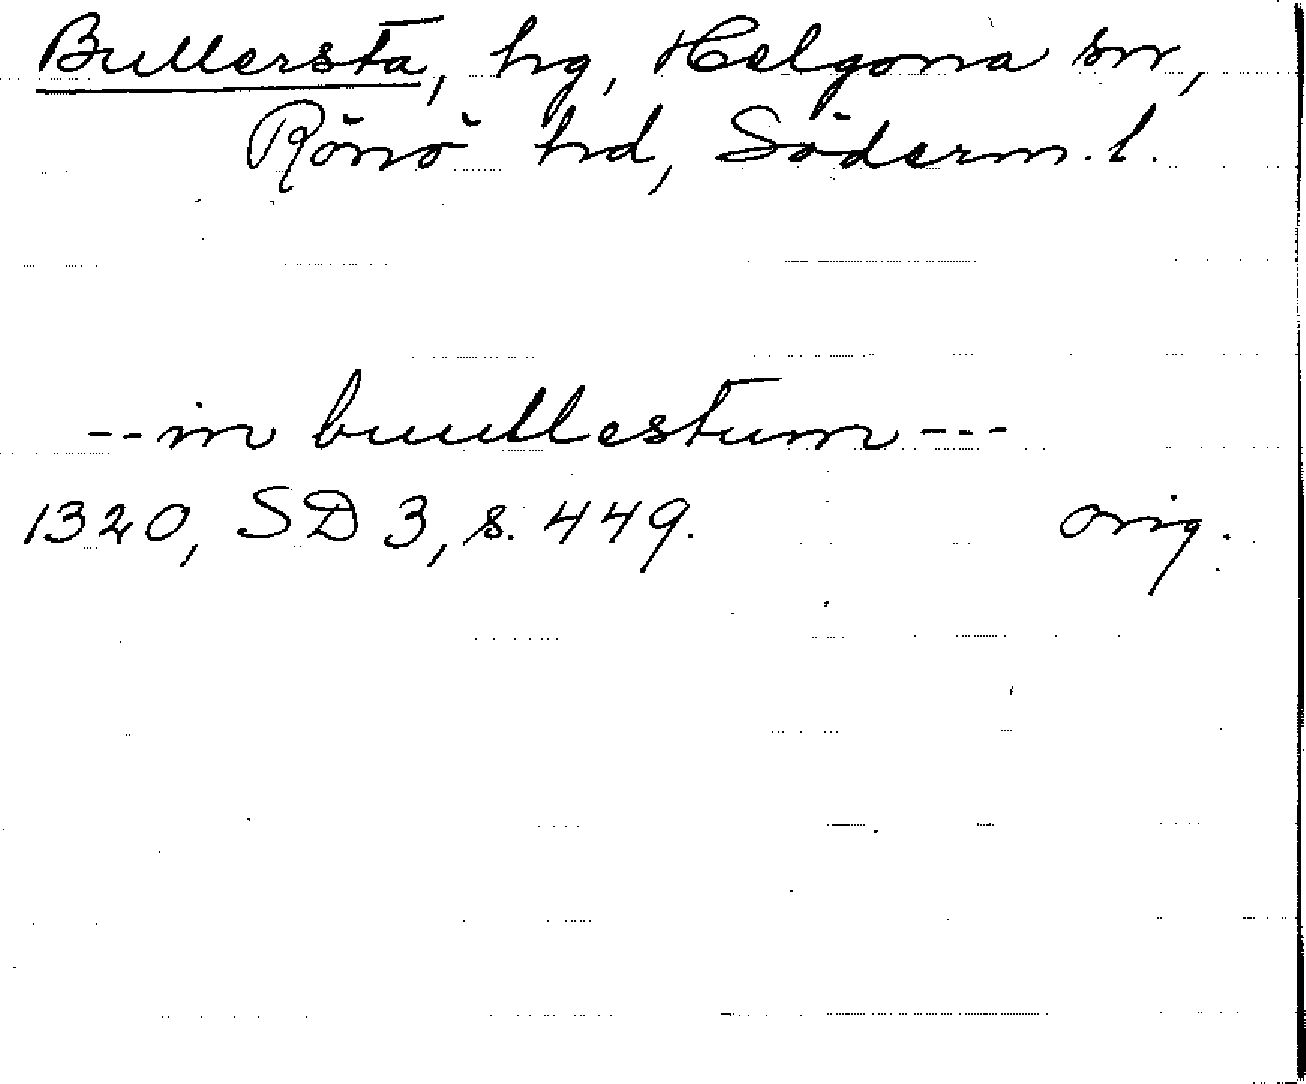 Bullersta, hg, Helgona sn,
Rönö hd, Söderm. l.
-- in buullestum ---
1320, SD 3, s. 449. orig.